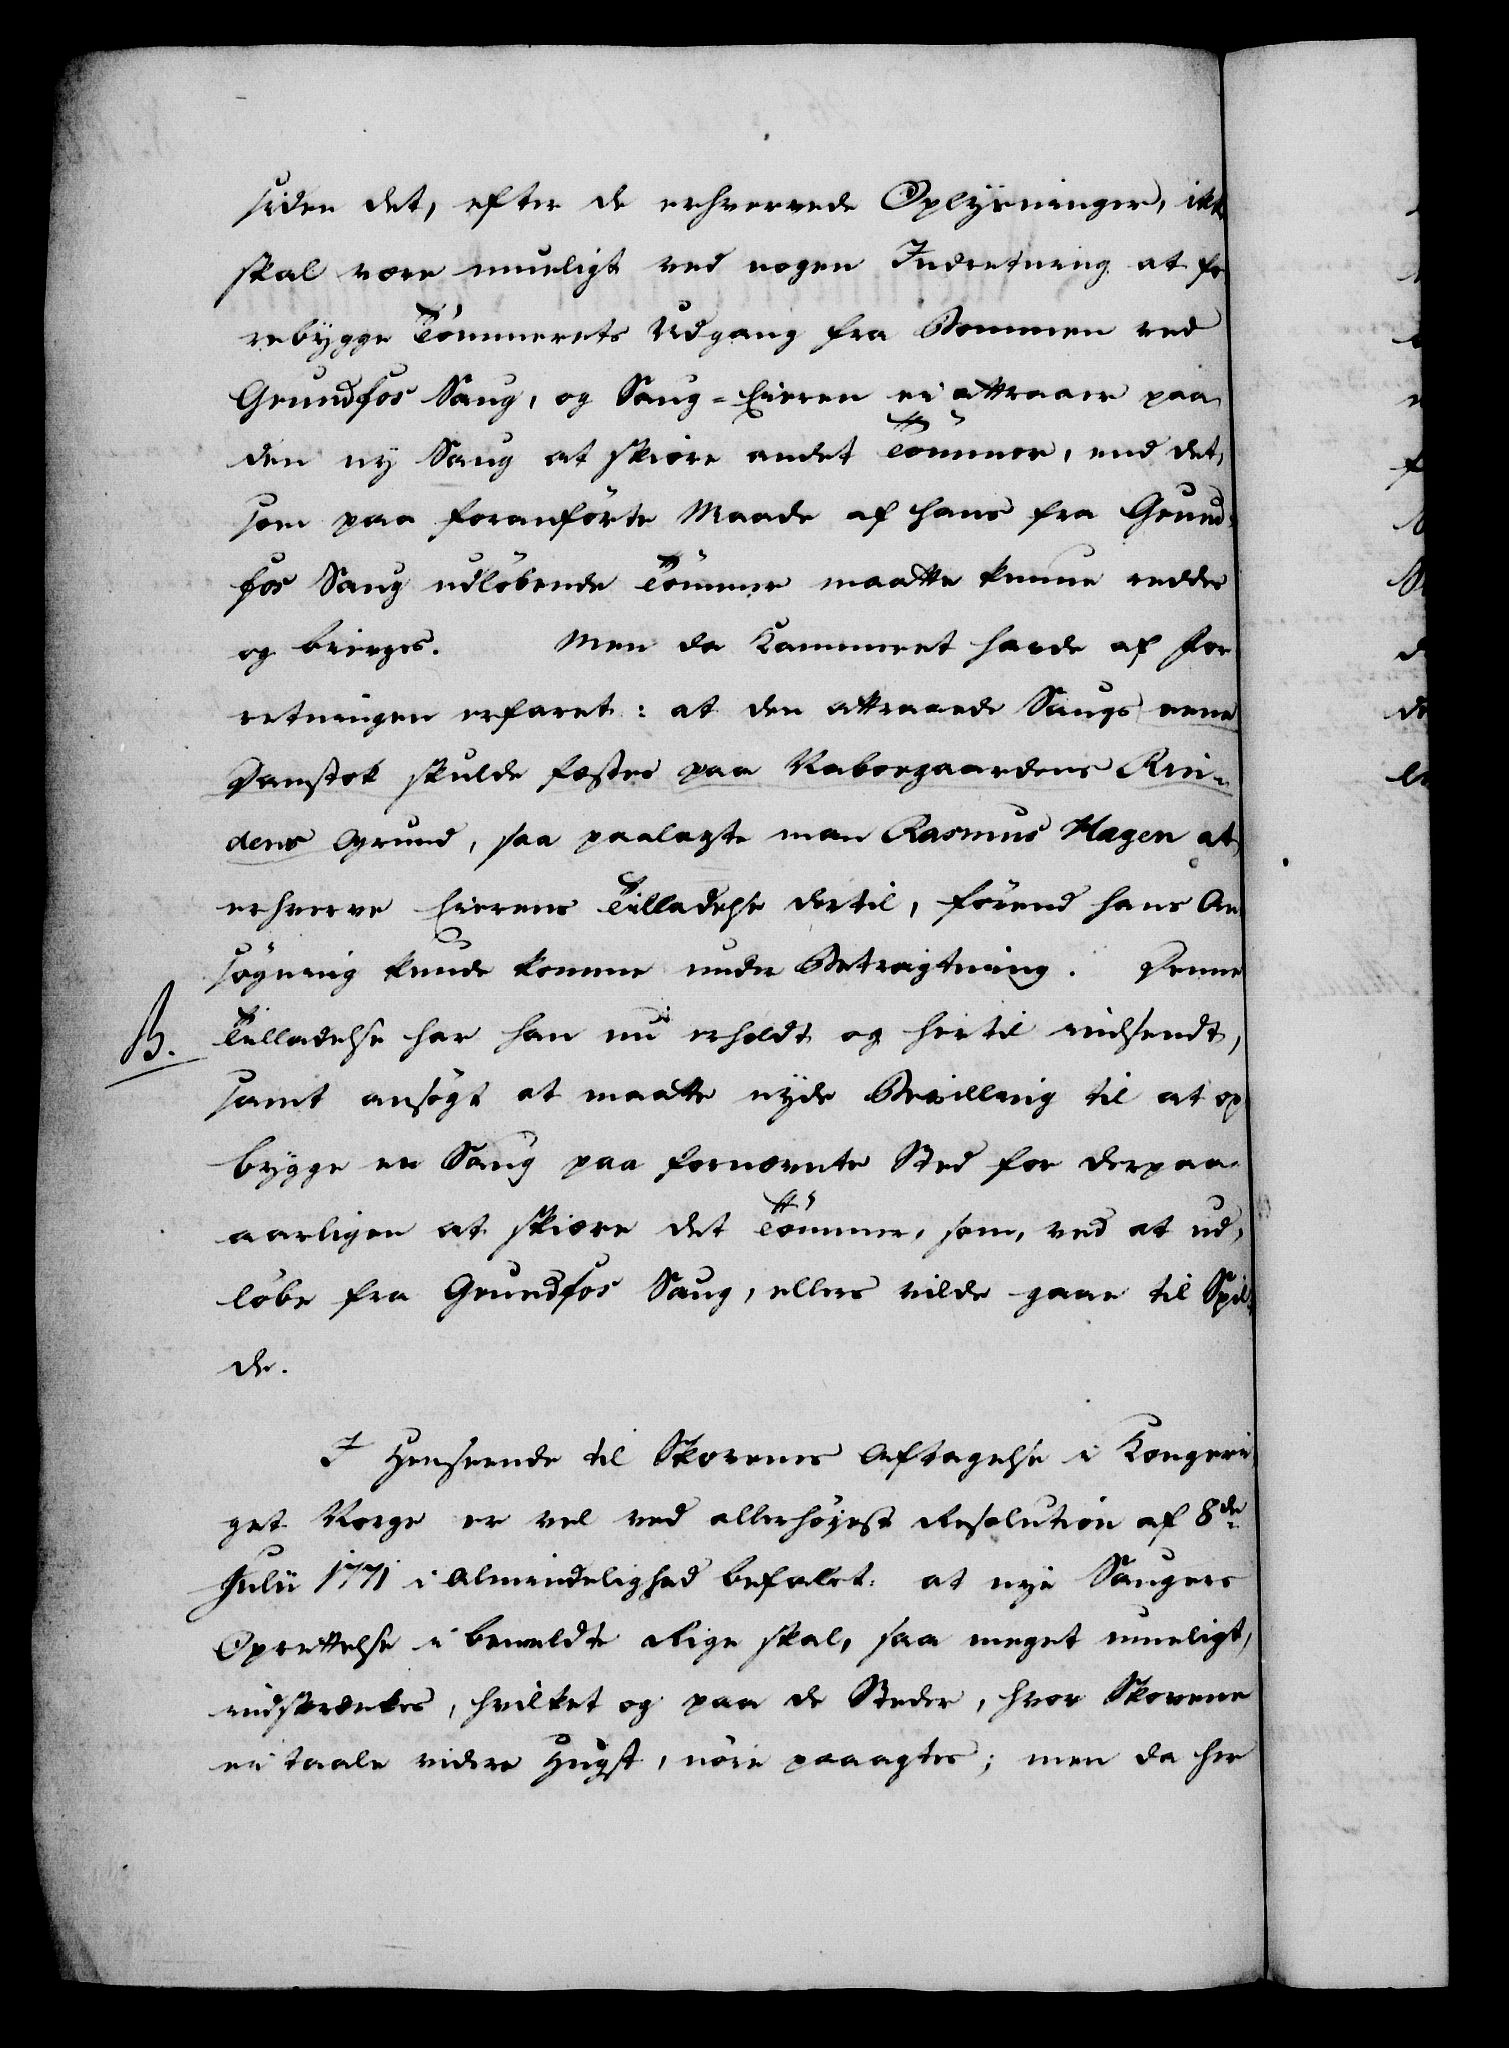 siden det, efter de erhvervede Oplysninger, ikke
skal være mueligt ved nogen Indretning at fo
rebygge Tömmerets Udgang fra Bommen ved
Grundfos Saug, og Saug-Eieren ei attraaer paa
den ny Saug at skiære andet Tömmer, end det,
som paa foranförte Maade af hans fra Grund-
fos Saug udlöbende Tömmer maatte kunne reddes
og bierges. Men da Kammeret havde af For
retningen erfaret: at den attraaede Saugs eene
Damstok skulde fæstes paa Naboegaardens Rin-
dens Grund, saa paalagte man Rasmus Hagen at
erhverve Eierens Tilladelse dertil, förend hans An
søgning kunde komme under Betragtning. Denne
B. Tilladelse har han nu erholdt og hertil indsendt,
samt ansögt at maatte nyde Bevilling til at op
bygge en Saug paa fornævnte Sted for derpaa
aarligen at skiære det Tömmer, som, ved at ud-
löbe fra Grundfos Saug, ellers vilde gaae til Spil-
de.
I Henseende til Skovenes Aftagelse i Kongeri
get Norge er vel ved allerhöyest Resolution af 8de
Julii 1771 i Almindelighed befalet: at nye Saugers
Oprettelse i bemeldte Rige skal, saa meget mueligt,
indskrænkes, hvilket og paa de Steder, hvor Skovene
ei taale videre Hugst, nöie paaagtes; men da her